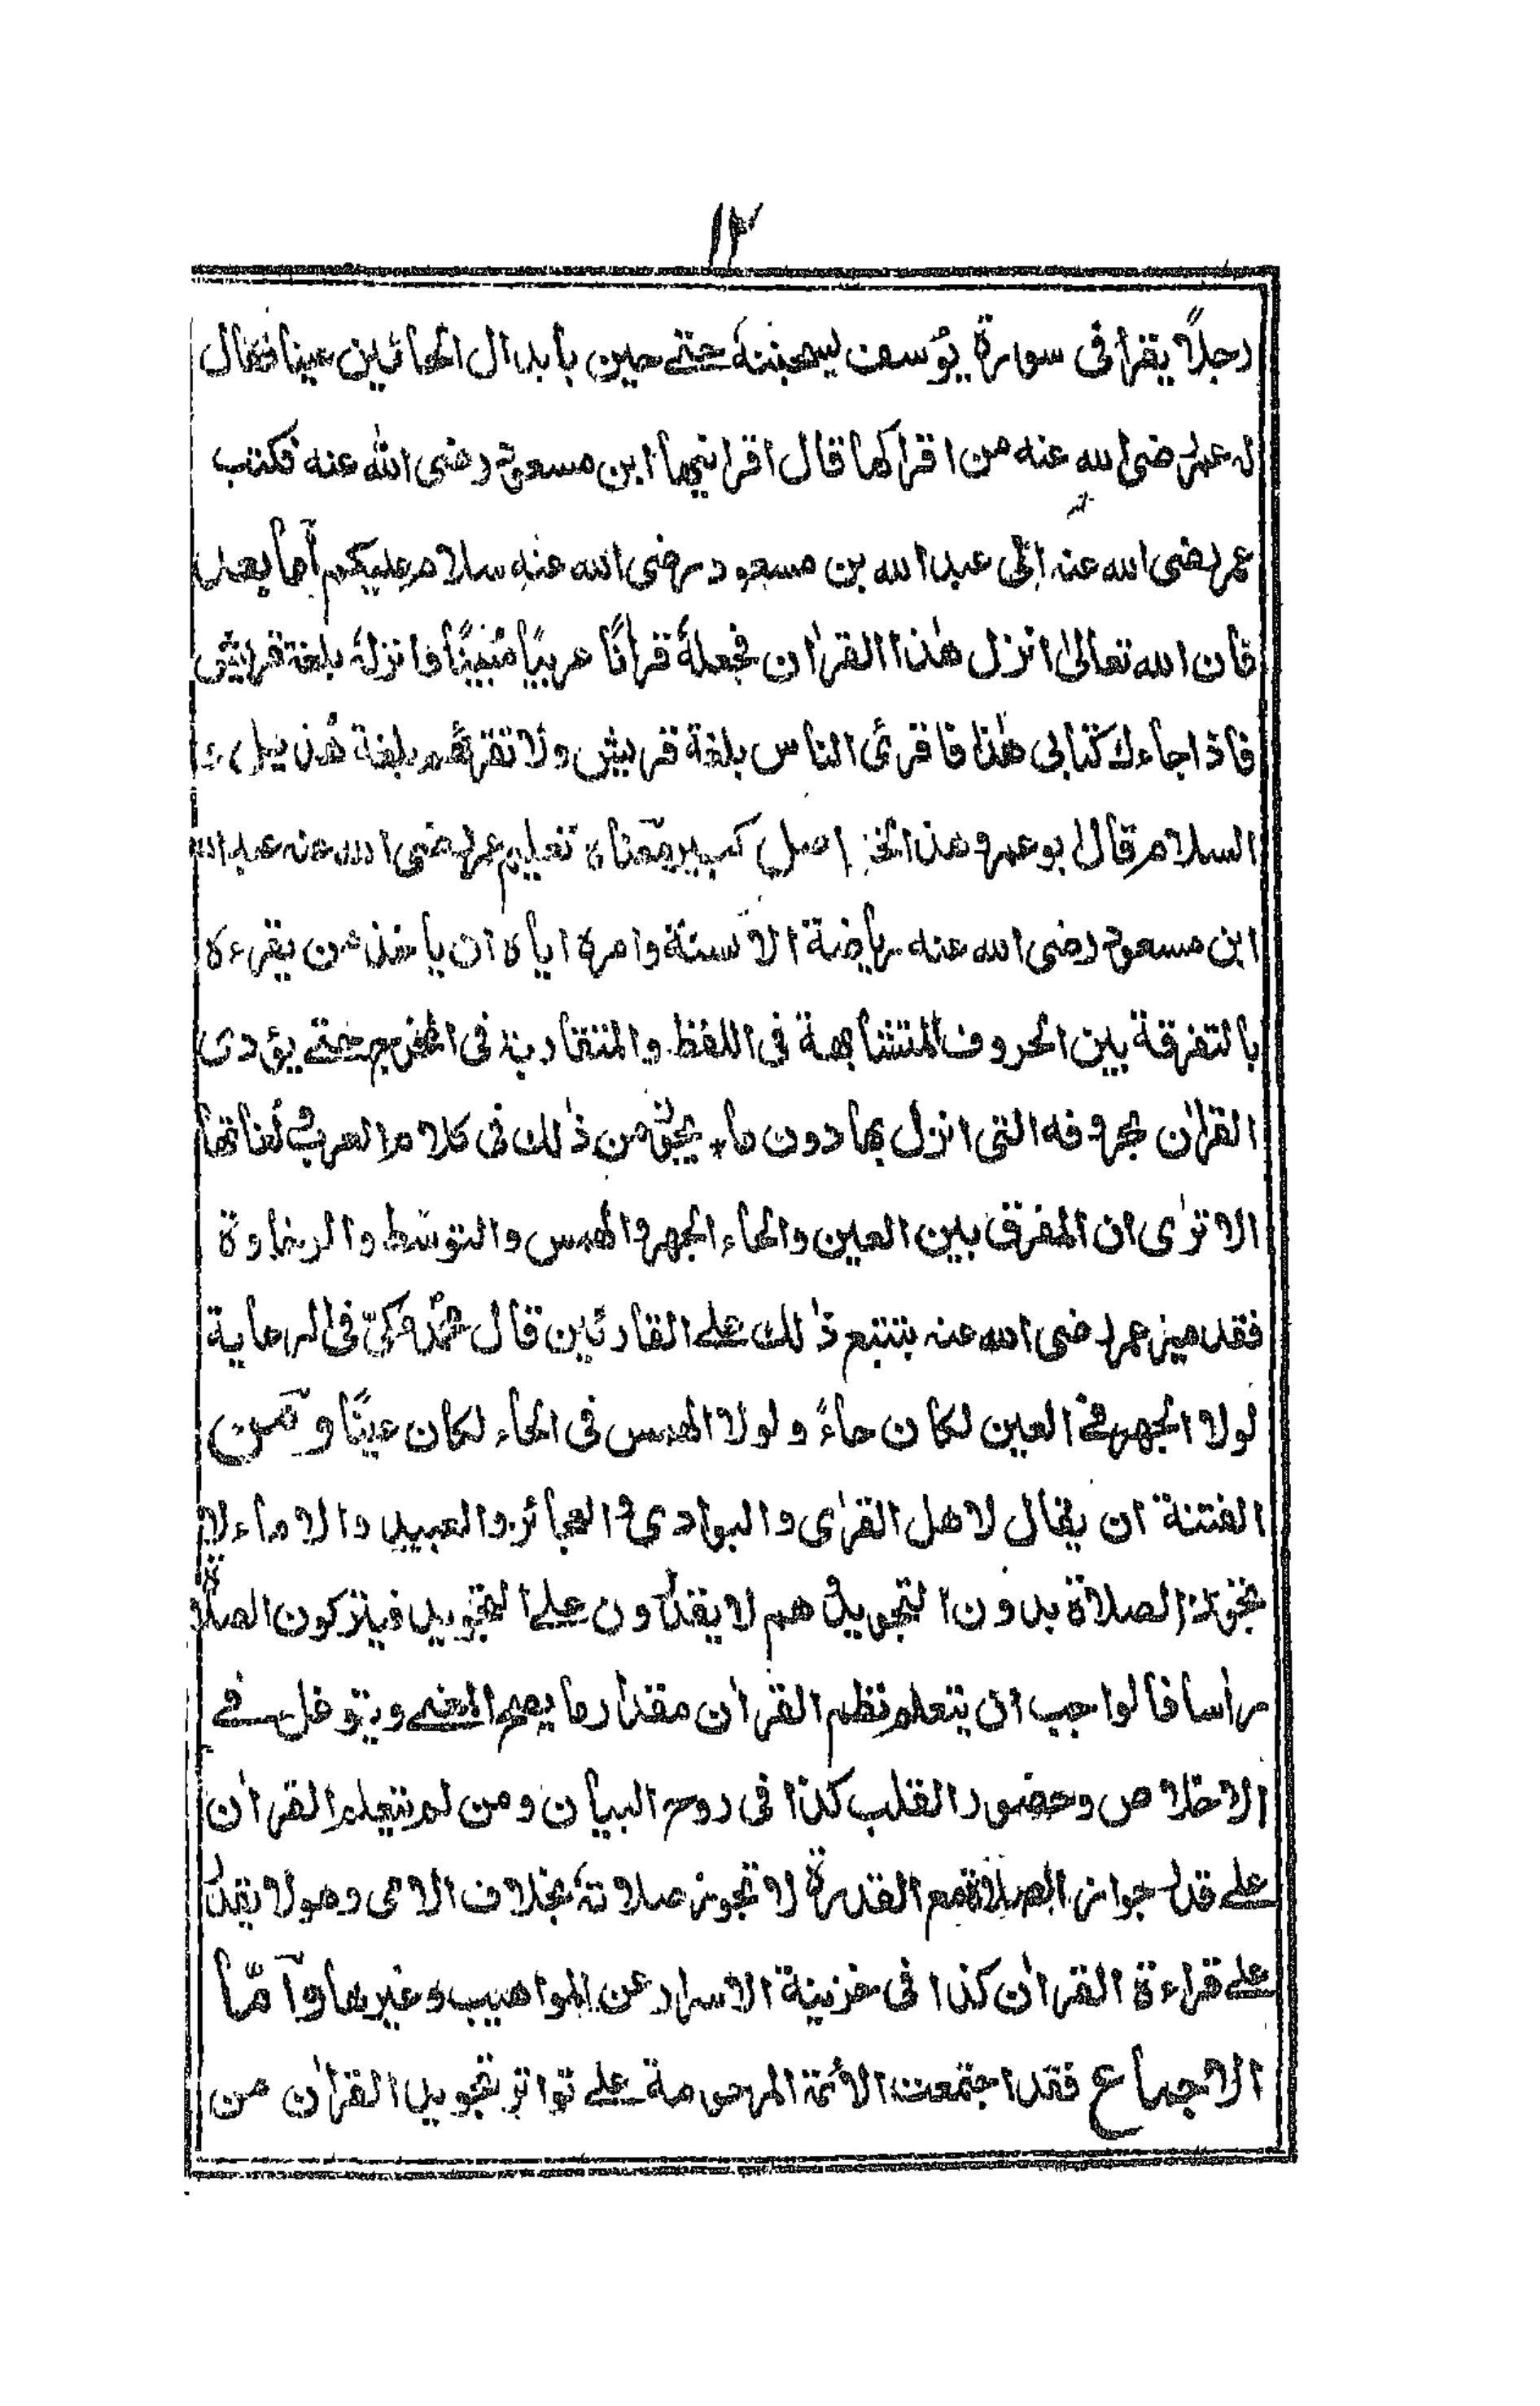 ١٢
رجلاً يقرا فى سورة يوسف ليسجننهٗ حتے حين بابدال الحائين عينا فقال
لہ عمر رضى الله عنه من اقراكها قال اقرانيها ابن مسعود رضى الله عنه فكتب
عمر رضى الله عنه الى عبد الله بن مسعود رضى الله عنه سلام عليكم اما بعد
فان الله تعالىٰ انزل هٰذا القراٰن فجعلهٗ قراٰنًا عربيًا مُبينًا وانزلهٗ بلغة قريش
فاذا جاءك كتابى هٰذا فاقرئ الناس بلغة قريش ولا تقرئهم بلغة هُذيل و
السلام قال ابو عمرو هذا الخبر اصل كبير معناه تعليم عمر رضى الله عنه عبد الله
ابن مسعود رضى الله عنه رياضة الالسنة وامره اياه ان ياخذ من يقرءه
بالتفرقة بين الحروف المتشابهة فى اللفظ والمتقاربة فى المخرج حتے يؤدى
القراٰن بحروفه التى انزل بها دون ما يجوز من ذٰلك فى كلام العرب ولغاتها
الا ترٰى ان المفرق بين العين والحاء الجهر والهمس والتوسّط والرخاوة
فقد ميز عمر رضى الله عنه بتتبع ذٰلك علے القارئين قال محمّد مكىّ فى الرعاية
لولا الجهر فے العين لكان حاءً ولولا الهمس فى الحاء لكان عينًا ومن
الفتنة ان يقال لاهل القرٰى والبوادى والعجائز والعبيد والاماء لا
تجوز الصلاة بدون التجويد و هم لا يقدرون علے التجويد فيتركون الصلوٰة
راسا فالواجب ان يتعلم نظم القراٰن مقدار ما يصح المعنے ويتوغل فے
الاخلاص وحضور القلب كذا فى روح البيان ومن لم يتعلم القراٰن
علے قدر جواز الصلاة مع القدرة لا تجوز صلاتهٗ بخلاف الامى وهو لا يقدر
علے قراءة القراٰن كذا فى خزينة الاسرار عن المواهب وغيرها وامّا
الاجماع فقد اجتمعت الائمة المرحومة علے تواتر تجويد القراٰن من